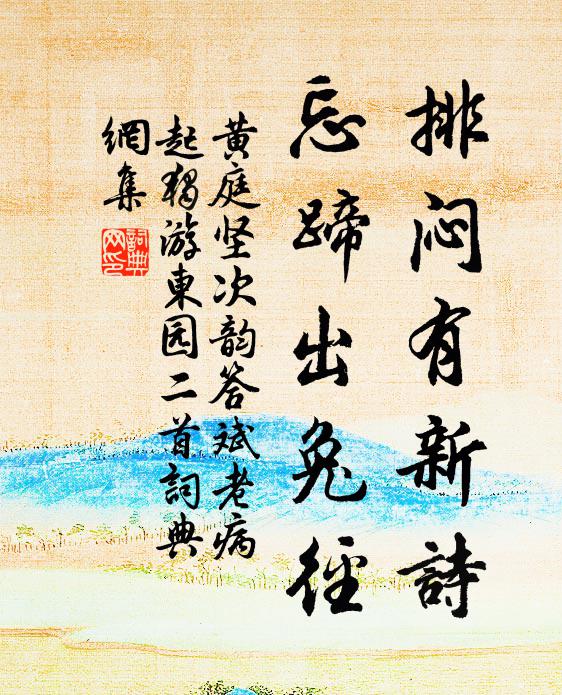 排闷有新詩
忘蹄出兔徑
黄庭坚次韵答斌老病
起獨游東园二首詞典
網集
詞典
网印